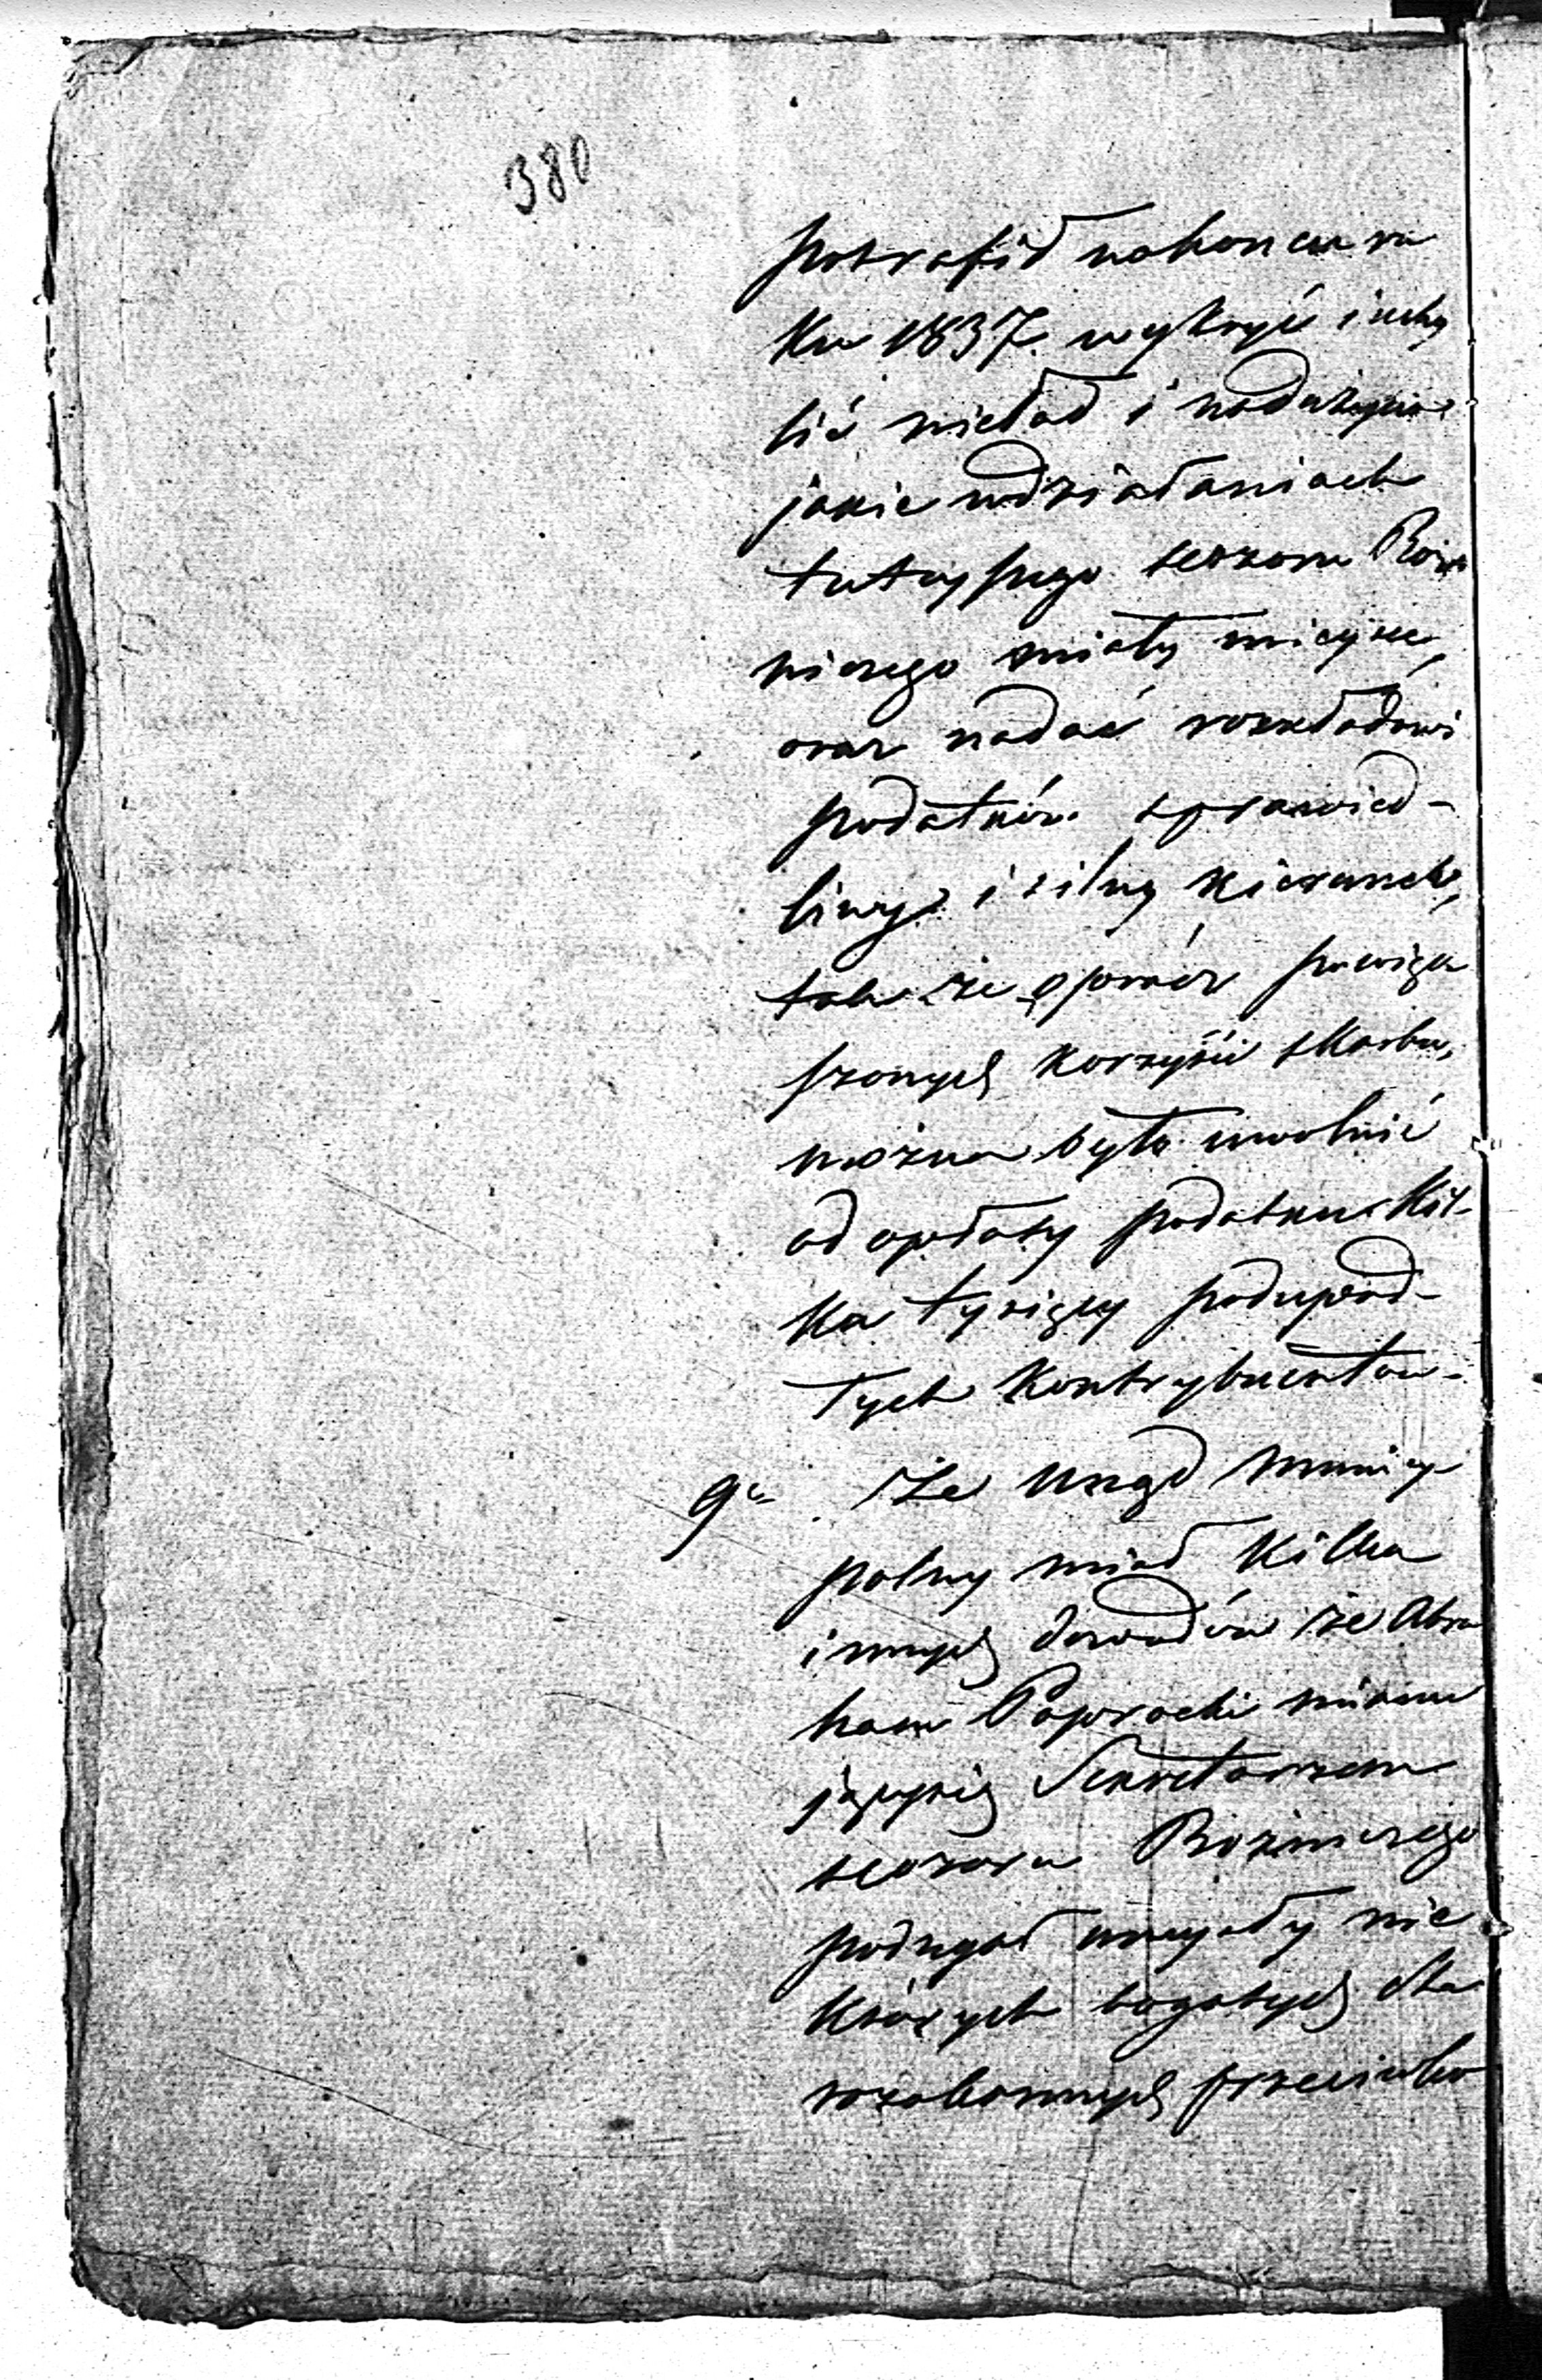 380
potrafił nakoncu ro
ku 1837. wykryć i uchy
lić nieład i nadużycia
jakie w działaniach
tutejszego dozoru Boż
niczego miały miejsce,
oraz nadać rozkładowi
podatków sprawied-
liwy i silny kierunek,
tak że oprócz powięk
szonych korzyści skarbu,
można było uwolnić
od opłaty podatku kil-
ka tysięcy podupad-
łych kontrybuentów.
9e Że Urząd Municy
palny miał kilka
innych dowodów że Abra
ham Paprocki mianu
jący się Sekretarzem
dozoru Bożniczego
podżegał umysły nie
których bogatych Sta
rozakonnych przeciwko